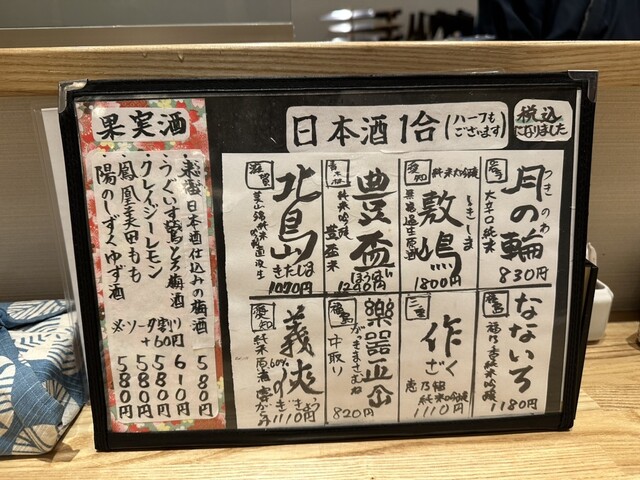 日本酒1合(ハーフもございます)
税込になりました
岩手
月の輪
つきのわ
大辛口純米
830円
愛知
純米大吟醸
敷嶋
しきしま
1800円
豊盃
ほうはい
純米吟醸
豊盃米
1290円
滋賀
北島
きたじま
1090円
福島
なないろ
純米吟醸
1180円
三重
作
ざく
恵乃智
純米吟醸
1110円
福島
楽器正宗
がっきまさむね
中取り
820円
愛知
義侠
ぎきょう
純米原酒60%
1110円
果実酒
・来福日本酒仕込みの梅酒 580円
・うぐいすとろ梅酒 610円
・クレイジーレモン 580円
・鳳凰美田もも 580円
・陽のしずくゆず酒 580円
※ソーダ割り
+60円